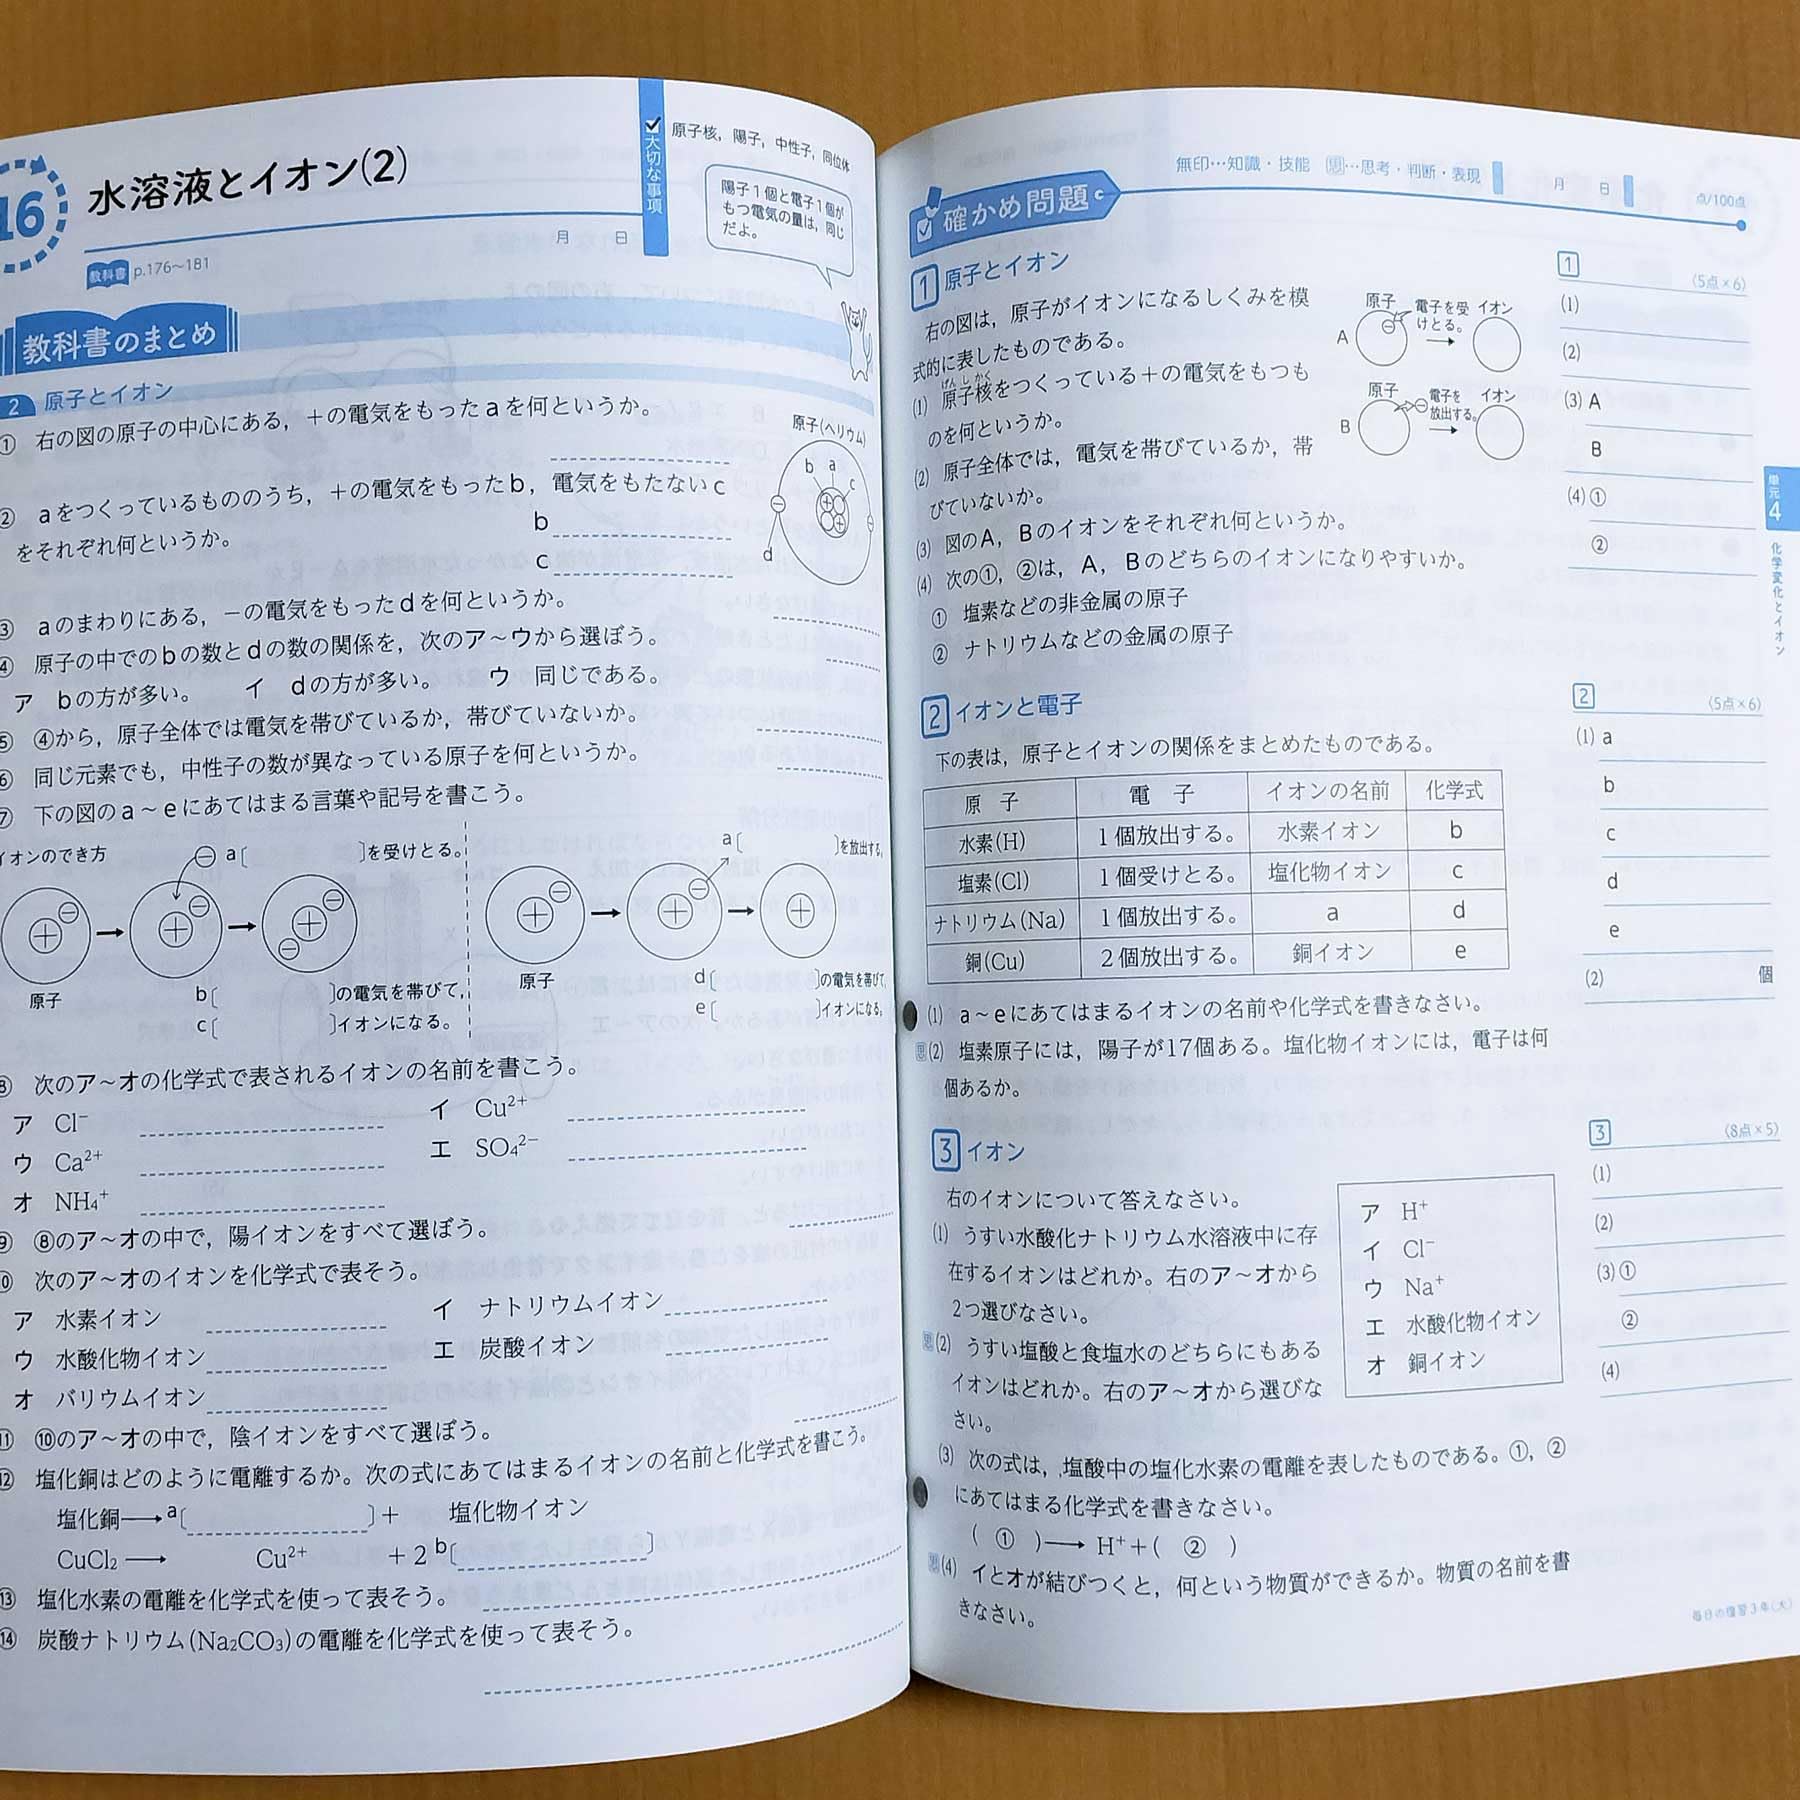 16
水溶液とイオン(2)
月　日
教科書 p.176〜181
大切な事項
原子核，陽子，中性子，同位体
陽子1個と電子1個が
もつ電気の量は，同じ
だよ。
教科書のまとめ
2 原子とイオン
① 右の図の原子の中心にある，＋の電気をもったaを何というか。
② aをつくっているもののうち，＋の電気をもったb，電気をもたないc
をそれぞれ何というか。
b
c
原子(ヘリウム)
b a c
d
③ aのまわりにある，−の電気をもったdを何というか。
④ 原子の中でのbの数とdの数の関係を，次のア〜ウから選ぼう。
ア bの方が多い。 イ dの方が多い。 ウ 同じである。
⑤ ④から，原子全体では電気を帯びているか，帯びていないか。
⑥ 同じ元素でも，中性子の数が異なっている原子を何というか。
⑦ 下の図のa〜eにあてはまる言葉や記号を書こう。
イオンのでき方
a〔　〕を受けとる。
a〔　〕を放出する。
原子
b〔　〕の電気を帯びて，
c〔　〕イオンになる。
原子
d〔　〕の電気を帯びて，
e〔　〕イオンになる。
⑧ 次のア〜オの化学式で表されるイオンの名前を書こう。
ア Cl⁻
イ Cu²⁺
ウ Ca²⁺
エ SO₄²⁻
オ NH₄⁺
⑨ ⑧のア〜オの中で，陽イオンをすべて選ぼう。
⑩ 次のア〜オのイオンを化学式で表そう。
ア 水素イオン
イ ナトリウムイオン
ウ 水酸化物イオン
エ 炭酸イオン
オ バリウムイオン
⑪ ⑩のア〜オの中で，陰イオンをすべて選ぼう。
⑫ 塩化銅はどのように電離するか。次の式にあてはまるイオンの名前と化学式を書こう。
塩化銅 → a〔　〕＋ 塩化物イオン
CuCl₂ → Cu²⁺ ＋2 b〔　〕
⑬ 塩化水素の電離を化学式を使って表そう。
⑭ 炭酸ナトリウム(Na₂CO₃)の電離を化学式を使って表そう。
確かめ問題c
無印…知識・技能　思…思考・判断・表現
月　日
点/100点
1 原子とイオン
右の図は，原子がイオンになるしくみを模
式的に表したものである。
(1) 原子核をつくっている＋の電気をもつも
げんしかく
のを何というか。
(2) 原子全体では，電気を帯びているか，帯
びていないか。
(3) 図のA，Bのイオンをそれぞれ何というか。
(4) 次の①，②は，A，Bのどちらのイオンになりやすいか。
① 塩素などの非金属の原子
② ナトリウムなどの金属の原子
原子 電子を受 イオン
けとる。
A
原子 電子を イオン
放出する。
B
1 (5点×6)
(1)
(2)
(3) A
B
(4) ①
②
2 イオンと電子
下の表は，原子とイオンの関係をまとめたものである。
原　子 電　子 イオンの名前 化学式
水素(H) 1個放出する。 水素イオン b
塩素(Cl) 1個受けとる。 塩化物イオン c
ナトリウム(Na) 1個放出する。 a d
銅(Cu) 2個放出する。 銅イオン e
(1) a〜eにあてはまるイオンの名前や化学式を書きなさい。
思(2) 塩素原子には，陽子が17個ある。塩化物イオンには，電子は何
個あるか。
2 (5点×6)
(1) a
b
c
d
e
(2) 個
3 イオン
右のイオンについて答えなさい。
(1) うすい水酸化ナトリウム水溶液中に存
在するイオンはどれか。右のア〜オから
2つ選びなさい。
思(2) うすい塩酸と食塩水のどちらにもある
イオンはどれか。右のア〜オから選びな
さい。
(3) 次の式は，塩酸中の塩化水素の電離を表したものである。①，②
にあてはまる化学式を書きなさい。
( ① ) → H⁺＋( ② )
思(4) イとオが結びつくと，何という物質ができるか。物質の名前を書
きなさい。
ア H⁺
イ Cl⁻
ウ Na⁺
エ 水酸化物イオン
オ 銅イオン
3 (8点×5)
(1)
(2)
(3) ①
②
(4)
単元4 化学変化とイオン
毎日の復習3年(大)